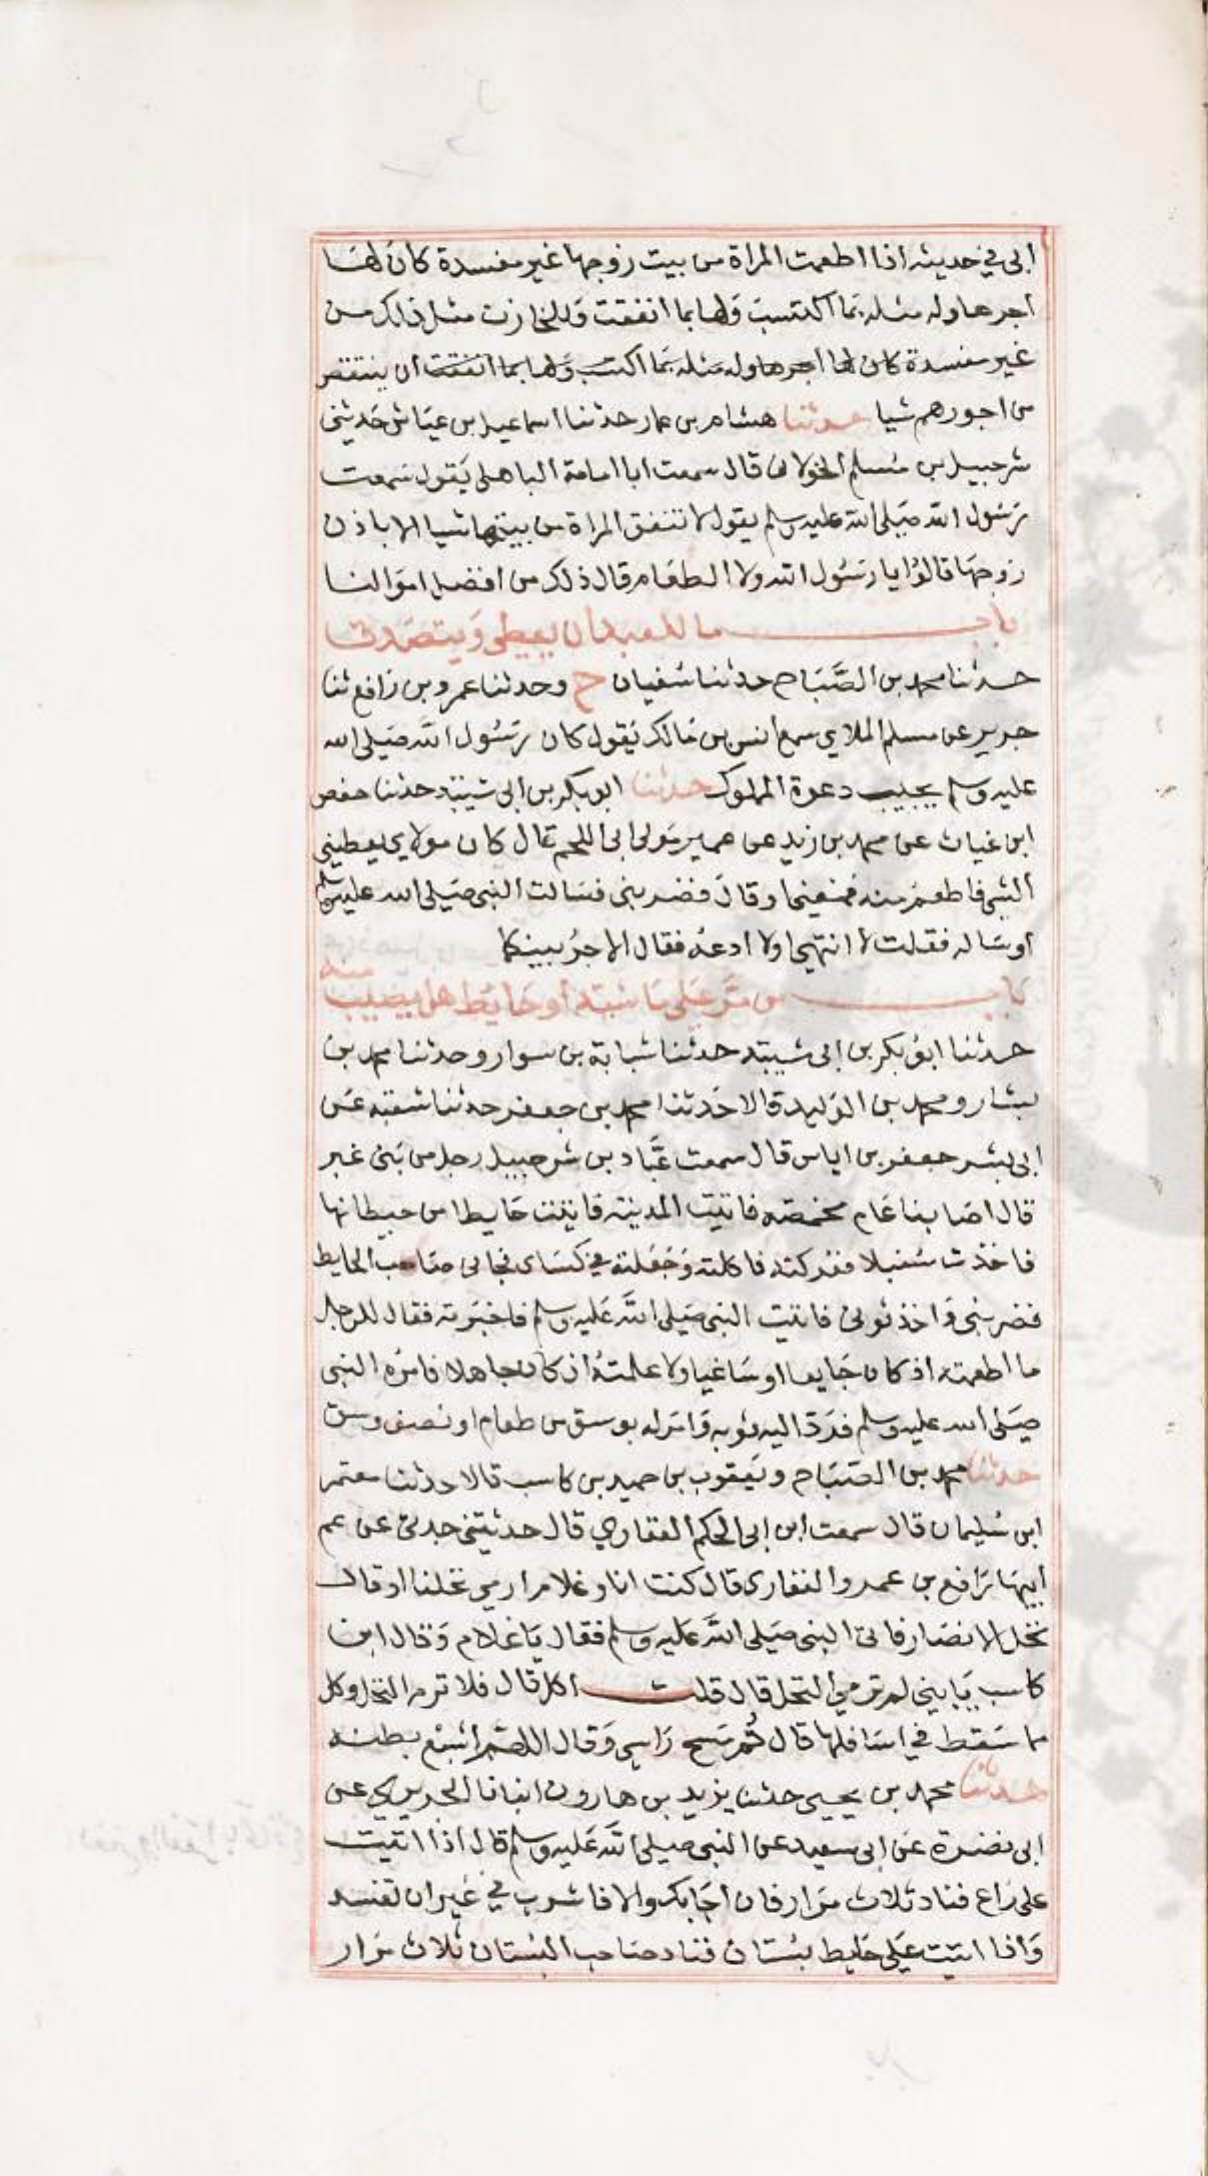 ابى في حديثه اذا اطعمت المراة من بيت زوجها غير مفسدة كان لها
اجرها وله مثله بما اكتسب ولها بما انفقت وللخازن مثل ذلك من
غير مفسدة كان لها اجرها وله مثله بما اكتسب ولها بما انفقت ان ينتقص
من اجورهم شيا حدثنا هشام بن عمار حدثنا اسماعيل بن عياش حدثني
شرحبيل بن مسلم الخولانى قال سمعت ابا امامة الباهلى يقول سمعت
رسول الله صلى الله عليه وسلم يقول لا تنفق المراة من بيتها شيا الا باذن
زوجها قالوا يا رسول الله ولا الطعام قال ذلك من افضل اموالنا
باب ما للعبد ان يعطى ويتصدق
حدثنا محمد بن الصَّبَاح حدثنا سفيان ح وحدثنا عمرو بن رافع ثنا
جرير عن مسلم الملاي سمع انس بن مالك يقول كان رسول الله صلى الله
عليه وسلم يجيب دعوة المملوك حدثنا ابو بكر بن ابى شيبة حدثنا حفص
ابن غياث عن محمد بن زيد عن عمير مولى ابى اللحم قال كان مولاي يعطيني
الشى فاطعم منه فمنعني او قال فضربنى فسالت النبى صلى الله عليه وسلم
او ساله فقلت لا انتهى او لا ادعه فقال الاجر بينكما
باب من مَرَّ على ماشية او حايط هل يصيب منه
حدثنا ابو بكر بن ابى شيبة حدثنا شبابة بن سوار وحدثنا محمد بن
بشار ومحمد بن الوليد قالا حدثنا محمد بن جعفر حدثنا شعبة عن
ابى بشر جعفر بن اياس قال سمعت عَبَّاد بن شرحبيل رجل من بنى غبر
قال اصابنا عام مخمصة فاتيت المدينة فاتيت حايطا من حيطانها
فاخذت سنبلا ففركته فاكلته وجعلته في كساى فجانى صاحب الحايط
فضربنى واخذ ثوبى فاتيت النبى صلى الله عليه وسلم فاخبرته فقال للرجل
ما اطعمته اذ كان جايعا او ساغيا ولا علمته اذ كان جاهلا فامره النبى
صلى الله عليه وسلم فرد اليه ثوبه وامر له بوسق من طعام او نصف وسق
حدثنا محمد بن الصباح ويعقوب بن حميد بن كاسب قالا حدثنا معتمر
ابن سليمان قال سمعت ابن ابى الحكم الغفاري قال حدثتنى جدتى عن عم
ابيها رافع بن عمرو الغفارى قال كنت انا وغلام ارمي نخلنا او قال
نخل الانصار فاتى النبى صلى الله عليه وسلم فقال يا غلام وقال ابن
كاسب يا بني لم ترمي النخل قال قلت اكل قال فلا ترم النخل وكل
ما سقط في اسافلها قال ثُم مسح راسي وقال اللهم اشبع بطنه
حدثنا محمد بن يحيى حدثنا يزيد بن هارون انبانا الجريري عن
ابى نضرة عن ابى سعيد عن النبى صلى الله عليه وسلم قال اذا اتيت
على راع فناد ثلاث مرار فان اجابك والا فاشرب في غير ان تفسد
واذا اتيت على حايط بستان فناد صاحب البستان ثلاث مرار